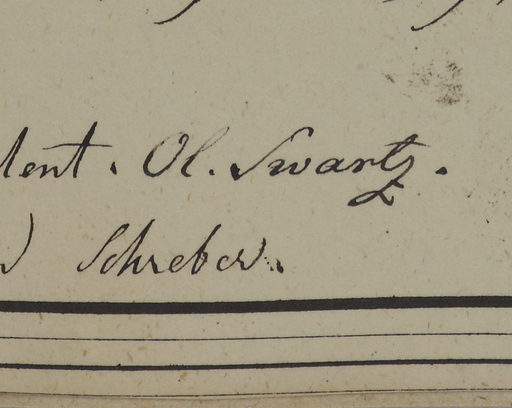 dent. Ol. Swartz.
Schreber.